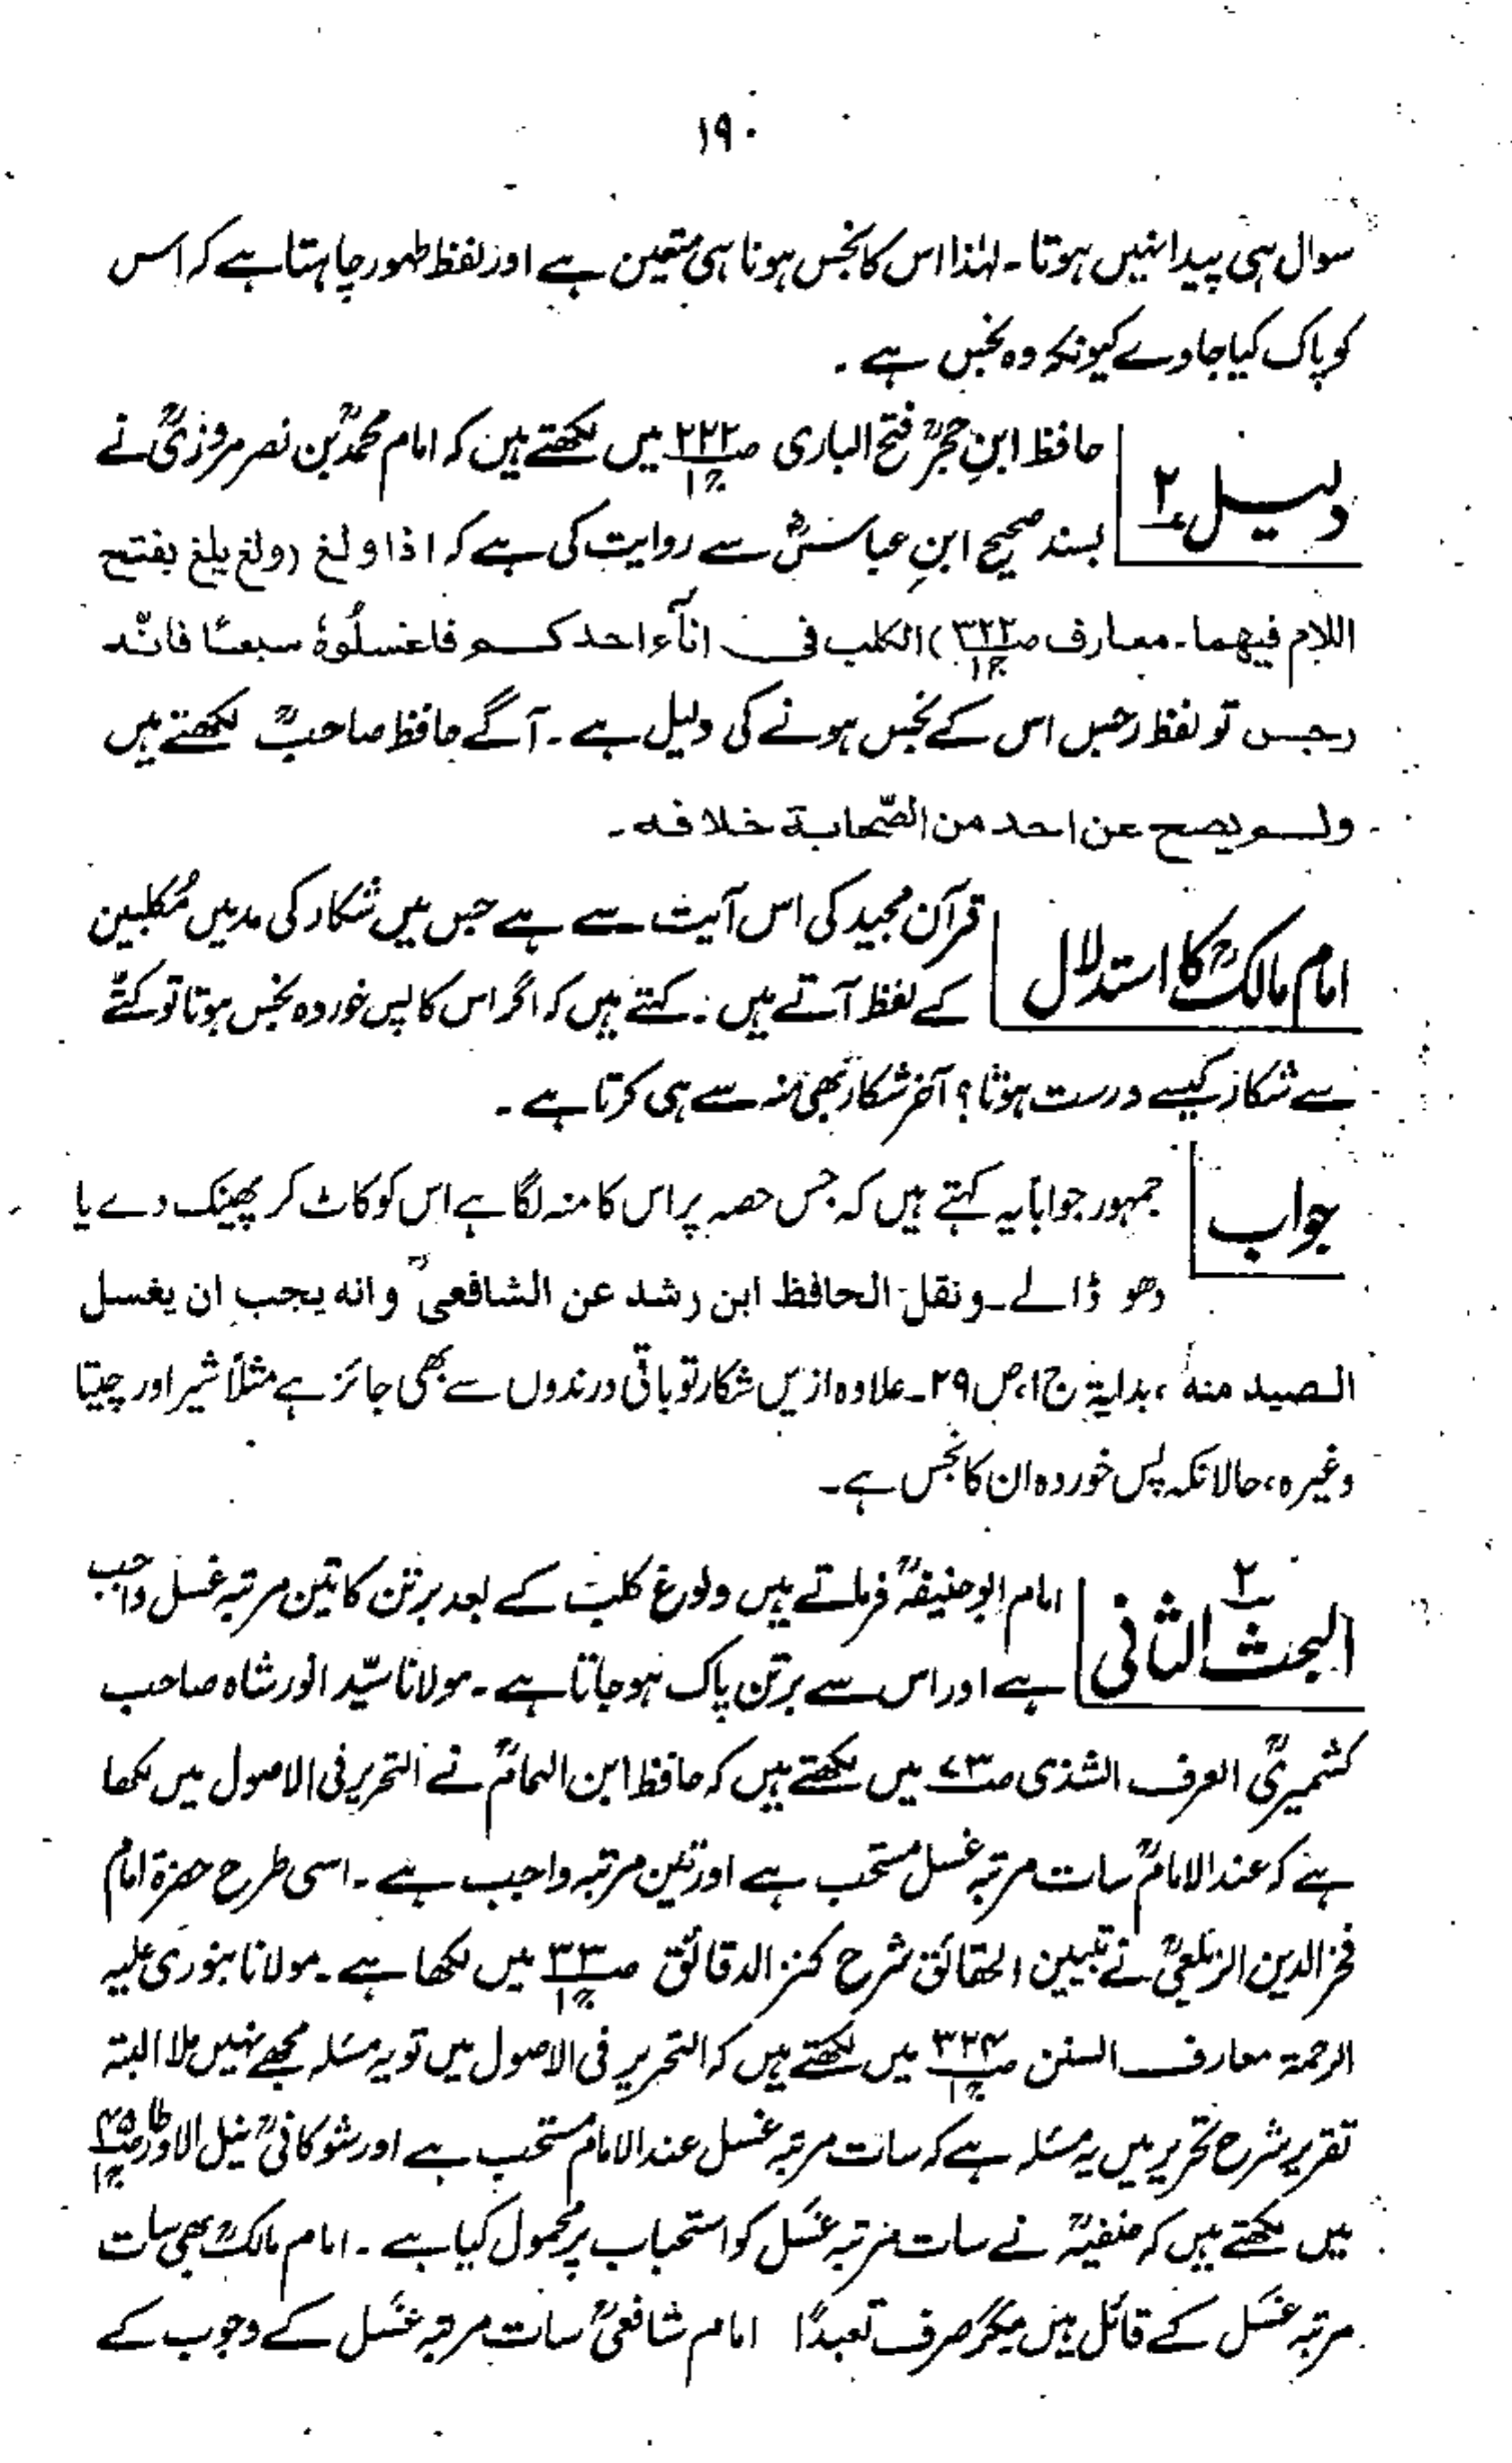 ۱۹۰
سوال ہی پیدا نہیں ہوتا۔ لہٰذا اس کا نجس ہونا ہی متعین ہے اور لفظ طہور چاہتا ہے کہ اس
کو پاک کیا جاوے کیونکہ وہ نجس ہے۔
دلیل ۲
حافظ ابنِ حجرؒ فتح الباری ص۲۲۲ ج۱ میں لکھتے ہیں کہ امام محمدؒ بن نصر مروزیؒ نے
بسند صحیح ابنِ عباسؓ سے روایت کی ہے کہ اذا ولغ (ولغ یلغ بفتح
اللام فیھما۔ معارف ص۳۲۲ ج۱) الکلب فی اناۤء احدکم فاغسلُوہُ سبعًا فانّہ
رجس تو لفظ رجس اس کے نجس ہونے کی دلیل ہے۔ آگے حافظ صاحبؒ لکھتے ہیں
ولم یصح عن احد من الصّحابۃ خلافہ۔
امام مالکؒ کا استدلال
قرآن مجید کی اس آیت سے ہے جس میں شکار کی مد میں مُکلبین
کے لفظ آتے ہیں: کہتے ہیں کہ اگر اس کا پس خوردہ نجس ہوتا تو کتّے
سے شکار کیسے درست ہوتا؟ آخر شکار بھی منہ سے ہی کرتا ہے۔
جواب
جمہور جواباً یہ کہتے ہیں کہ جس حصہ پر اس کا منہ لگا ہے اس کو کاٹ کر پھینک دے یا
دھو ڈالے۔ ونقل الحافظ ابن رشد عن الشافعیؒ وانہ یجب ان یغسل
الصید منہ، بدایۃ ج۱، ص ۲۹۔ علاوہ ازیں شکار تو باقی درندوں سے بھی جائز ہے مثلاً شیر اور چیتا
وغیرہ، حالانکہ پس خوردہ ان کا نجس ہے۔
البحث الثانی ۲
امام ابو حنیفہؒ فرماتے ہیں ولوغ کلب کے بعد برتن کا تین مرتبہ غسل واجب
ہے اور اس سے برتن پاک ہو جاتا ہے۔ مولانا سیّد انور شاہ صاحب
کشمیریؒ العرف الشذی ص۷۳ میں لکھتے ہیں کہ حافظ ابن الہمامؒ نے التحریر فی الاصول میں لکھا
ہے کہ عند الامامؒ سات مرتبہ غسل مستحب ہے اور تین مرتبہ واجب ہے۔ اسی طرح حضرۃ امام
فخر الدین الزیلعیؒ نے تبیین الحقائق شرح کنز الدقائق ص۳۳ ج۱ میں لکھا ہے۔ مولانا بنوری علیہ
الرحمۃ معارف السنن ص۳۲۴ ج۱ میں لکھتے ہیں کہ التحریر فی الاصول میں تو یہ مسئلہ مجھے نہیں ملا البتہ
تقریر شرح تحریر میں یہ مسئلہ ہے کہ سات مرتبہ غسل عند الامام مستحب ہے اور شوکانیؒ نیل الاوطار ص۴۵ ج۱
میں لکھتے ہیں کہ حنفیہؒ نے سات مرتبہ غسل کو استحباب پر محمول کیا ہے۔ امام مالکؒ بھی سات
مرتبہ غسل کے قائل ہیں مگر صرف تعبداً امام شافعیؒ سات مرتبہ غسل کے وجوب کے